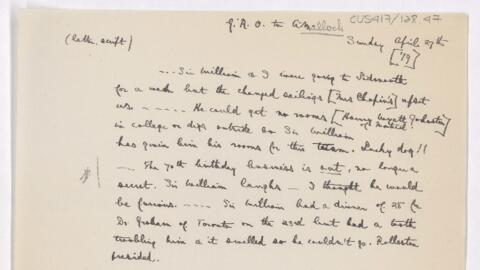 CUS417/128.47
G.R.O. to A Malloch
(letter script) Sunday April 27th
['19]
.... Sir William & I were going to Sidmouth
for a week but the changed sailings [Mrs Chapin's] upset
us. ----- He could get no rooms [Henry Wyatt Johnston]
of Montreal
in college or digs outside so Sir William
has given him his rooms for this team. Lucky dog!!
---- The 70th birthday business is out, no longer a
secret. Sir William laughs - I thought he would
be furious. ---- Sir William had a dinner of 25 for
Dr. Graham of Toronto on the 23rd but had a tooth
troubling him & it smelled so he couldn't go. Rolleston
presided.